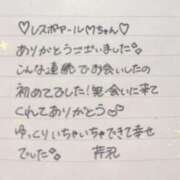 ♡レスポアール♡ちゃん♡
ありがとうございました
こんな連続でお会いしたの
初めてでした!笑 会いに来て
くれてありがとう♡
ゆっくりいちゃいちゃできて幸せ
でした。